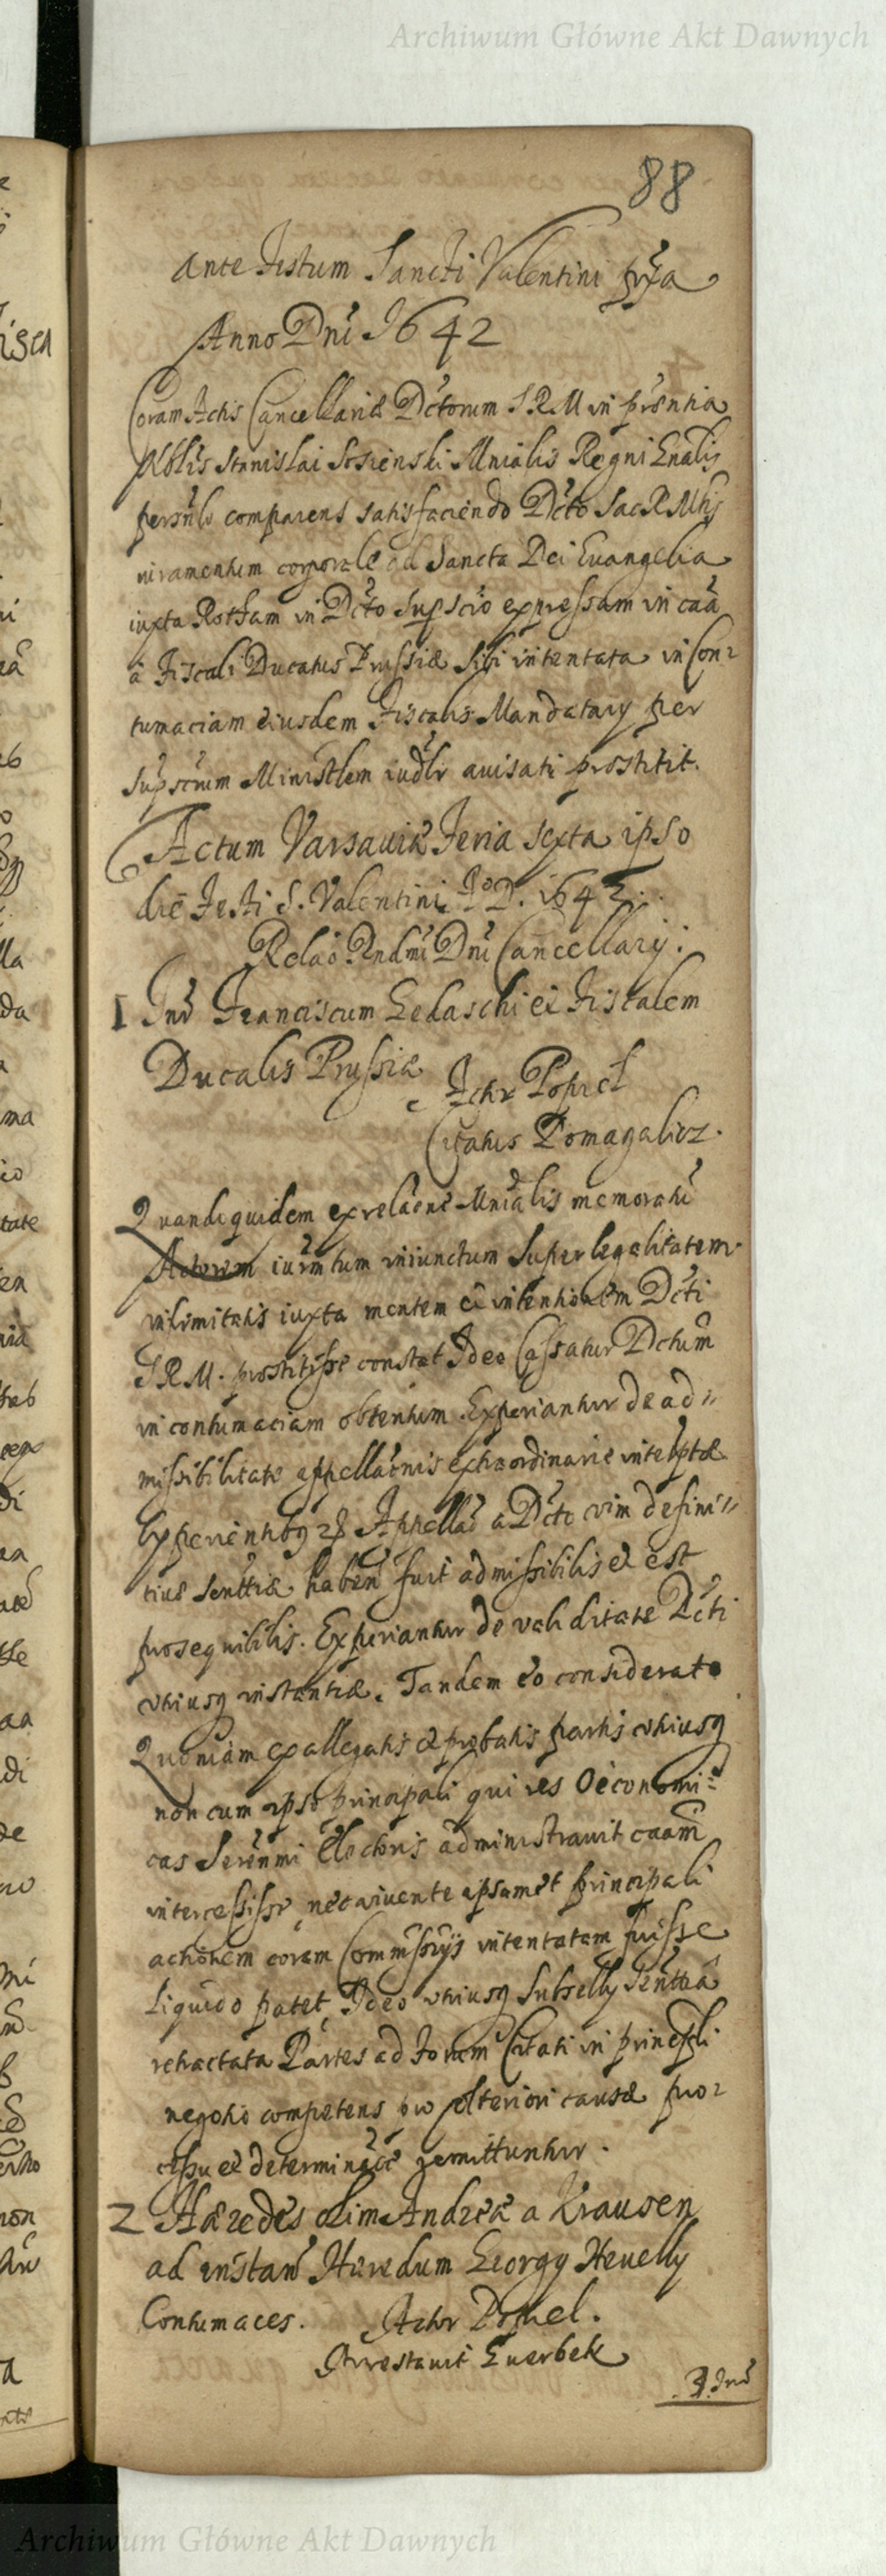 Archiwum Główne Akt Dawnych
88
ante Festum Sancti Valentini prxa
Anno Dni 1642
Coram Actis Cancellariæ Dctorum S.R.M in prsentia
Nblis Stanislai Sosienski Mnialis Regni Gnalis
persnlr comparens satisfaciendo Dcto Sac R Mtis
iuramentum corporale ad Sancta Dei Euangelia
iuxta Rotham in Dcto supscto expressam in caa
a Fiscali Ducatus Prussiæ sibi intentata in Con-
tumaciam eiusdem Fiscalis Mandatary per
supscrum Ministlem iudlr auisati prostitit.
Actum Varsauiæ Feria sexta ipso
die Festi S. Valentini Ao D. 1642.
Relao Rndmi Dni Cancellarij.
1 Inr Franciscum Gedaschi et Fiscalem
Ducalis Prussiæ
Actor Popiel
Citatus Pomagalicz.
Quandiquidem ex relaone Mnialis memorati
Actorem iurmtum iniunctum super legalitatem
inlimitatis iuxta mentem et intentionem Dcti
S R M. prostitisse constat Ideo Cassatur Dctum
in contumaciam obtentum. Experiantur de ad-
missibilitate appellaonis extraordinarie interptæ
Experientibq Appellao a Dcto vim defini-
tiuæ senttiæ haben fuit admissibilis et est
prosequibilis. Experiantur de validitate Dcti
vtriusq instantiæ. Tandem eo considerato
Quoniam ex allegatis et probatis partis vtriusq
non cum ipso principali qui res Oeconomi-
cas Serenmi Electoris administrauit caam
intercessisse, nec viuente ipsomet principali
actionem coram Commssrijs intentatam fuisse
liquido patet, Ideo vtriusq Subsellij Senttia
retractata Partes ad Forum Citati in principli
negotio competens pro vlteriori causæ pro-
cessu et determinaoe remittuntur.
2 Hæredes olim Andreæ a Krausen
ad instan Hæredum Georgy Heuelly
Contumaces. Actor Popiel.
Arrestauit Euerbek
3. Inr
Archiwum Główne Akt Dawnych